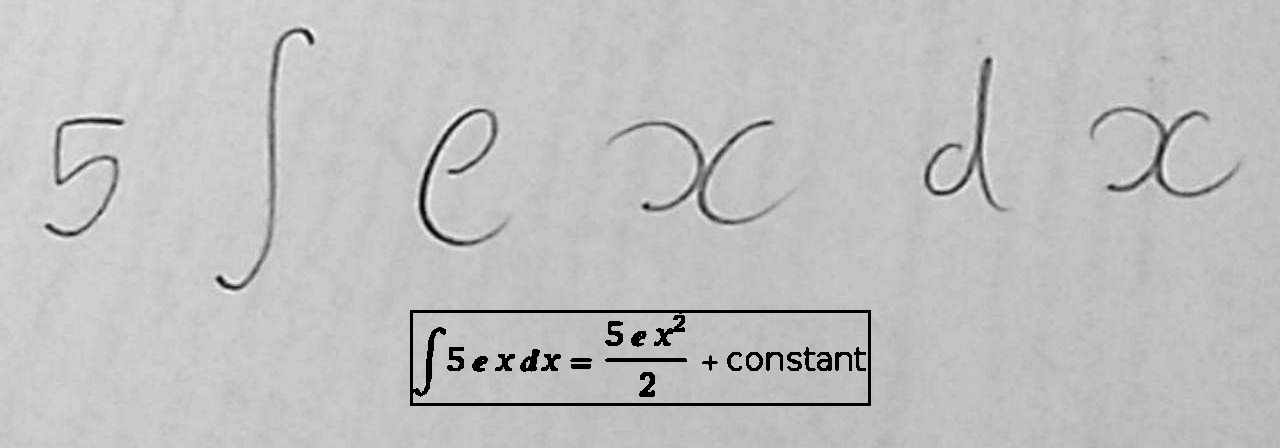 5 ∫ e x d x
∫ 5 e x dx = 5 e x² / 2 + constant